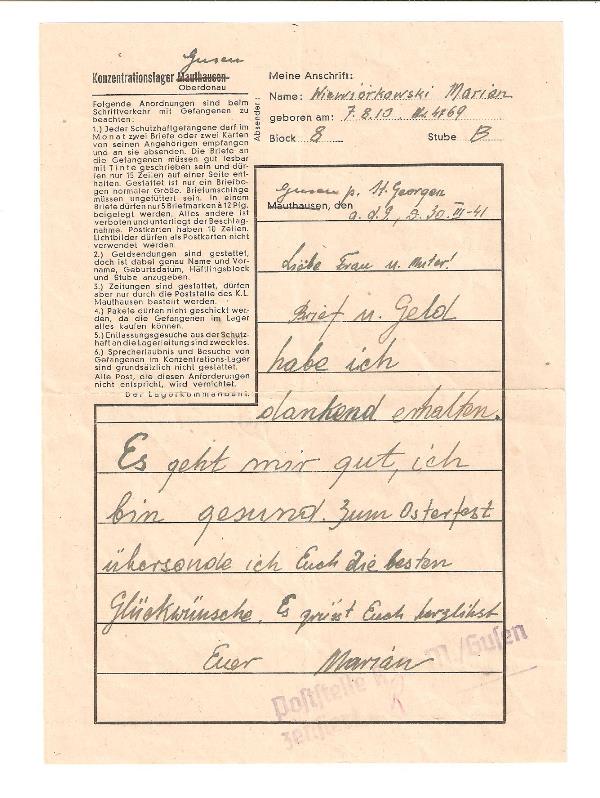 Gusen
Konzentrationslager Mauthausen
Oberdonau
Folgende Anordnungen sind beim
Schriftverkehr mit Gefangenen zu
beachten:
1.) Jeder Schutzhaftgefangene darf im
Monat zwei Briefe oder zwei Karten
von seinen Angehörigen empfangen
und an sie absenden. Die Briefe an
die Gefangenen müssen gut lesbar
mit Tinte geschrieben sein und dür-
fen nur 15 Zeilen auf einer Seite ent-
halten. Gestattet ist nur ein Briefbo-
gen normaler Größe. Briefumschläge
müssen ungefüttert sein. In einem
Briefe dürfen nur 5 Briefmarken à 12 Pfg.
beigelegt werden. Alles andere ist
verboten und unterliegt der Beschlag-
nahme. Postkarten haben 10 Zeilen.
Lichtbilder dürfen als Postkarten nicht
verwendet werden.
2.) Geldsendungen sind gestattet,
doch ist dabei genau Name und Vor-
name, Geburtsdatum, Häftlingsblock
und Stube anzugeben.
3.) Zeitungen sind gestattet, dürfen
aber nur durch die Poststelle des K.L.
Mauthausen bestellt werden.
4.) Pakete dürfen nicht geschickt wer-
den, da die Gefangenen im Lager
alles kaufen können.
5.) Entlassungsgesuche aus der Schutz-
haft an die Lagerleitung sind zwecklos.
6.) Sprecherlaubnis und Besuche von
Gefangenen im Konzentrations-Lager
sind grundsätzlich nicht gestattet.
Alle Post, die diesen Anforderungen
nicht entspricht, wird vernichtet.
Der Lagerkommandant.
Absender:
Meine Anschrift:
Name: Wiewiórkowski Marian
geboren am: 7.8.10 Nr. 4769
Block 8 Stube B
Gusen p. St. Georgen
Mauthausen, den a.d.G, D. 30.III-41
Liebe Frau u. Mutter!
Brief u. Geld
habe ich
dankend erhalten.
Es geht mir gut, ich
bin gesund. Zum Osterfest
übersende ich Euch die besten
Glückwünsche. Es grüsst Euch herzlihst
Euer Marian
Poststelle K.L. M./Gusen